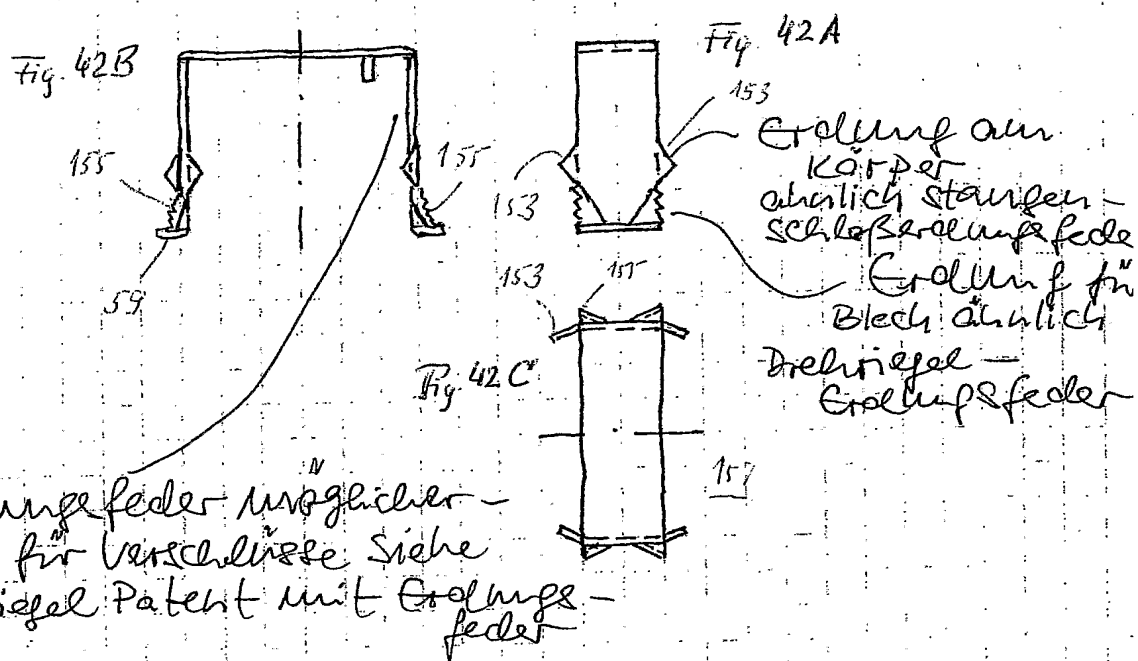 Fig. 42B
Fig 42A
153
Erdung am
Körper
ähnlich Stangen-
schloßerdungsfede
Erdung fü
Blech ähnlich
Drehriegel-
Erdungsfeder
155
155
153
59
153
155
Fig. 42C
157
ungsfeder möglicher-
für Verschlüsse siehe
iegel Patent mit Erdungs-
feder